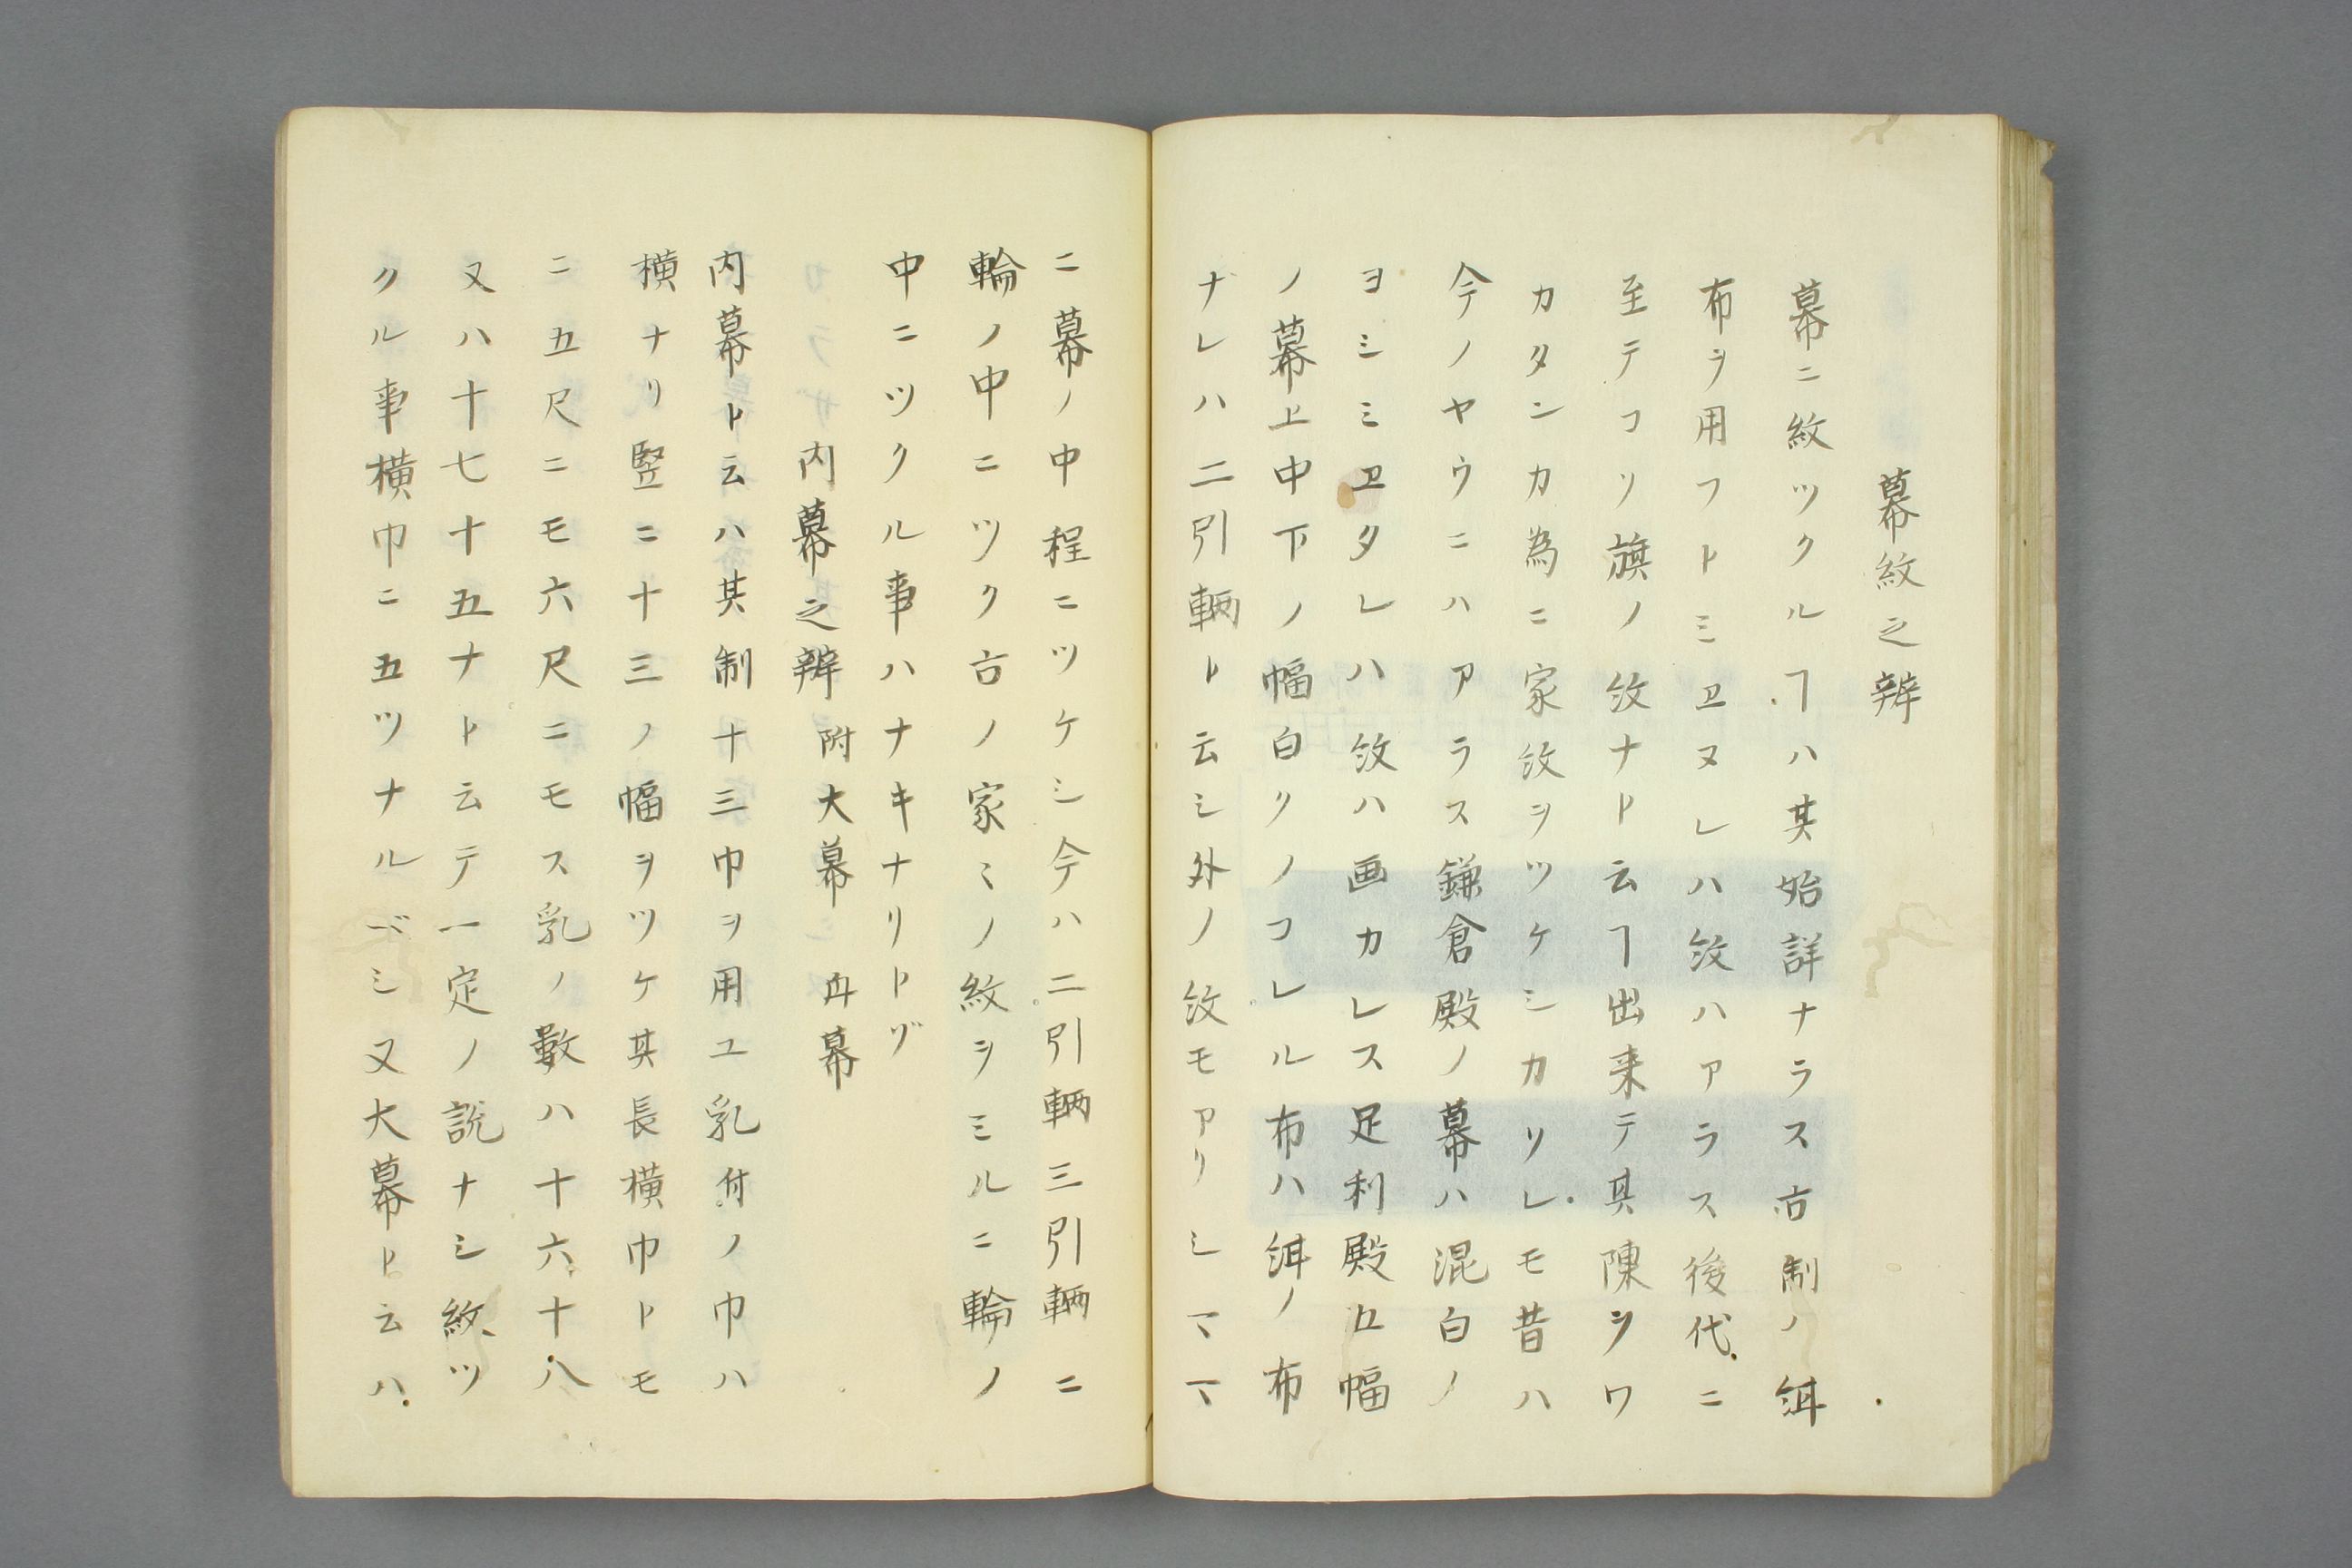 幕紋之辨
幕ニ紋ツクルヿハ其始詳ナラス古制ノ絣
布ヲ用フトミヱヌレハ紋ハアラス後代ニ
至テコソ旗ノ紋ナト云ヿ出来テ其陳ヲワ
カタンカ為ニ家紋ヲツケシカリレモ昔ハ
今ノヤウニハアラス鎌倉殿ノ幕ハ混白ノ
ヨシミヱタレハ紋ハ画カレス足利殿五幅
ノ幕上中下ノ幅白クノコレル布ハ絣ノ布
ナレハ二引輌ト云シ外ノ紋モアリシマヽ
ニ幕ノ中程ニツケシ今ハ二引輌三引輌ニ
輪ノ中ニツク古ノ家ミノ紋ヲミルニ輪ノ
中ニツクル事ハナキナリトゾ
内幕之辨 附大幕 冉幕
内幕ト云ハ其制十三巾ヲ用ユ乳付ノ巾ハ
横ナリ竪ニ十三ノ幅ヲツケ其長横巾トモ
ニ五尺ニモ六尺ニモス乳ノ數ハ十六十八
又ハ十七十五ナト云テ一定ノ説ナシ紋ツ
クル事横巾ニ五ツナルベシ又大幕ト云ハ